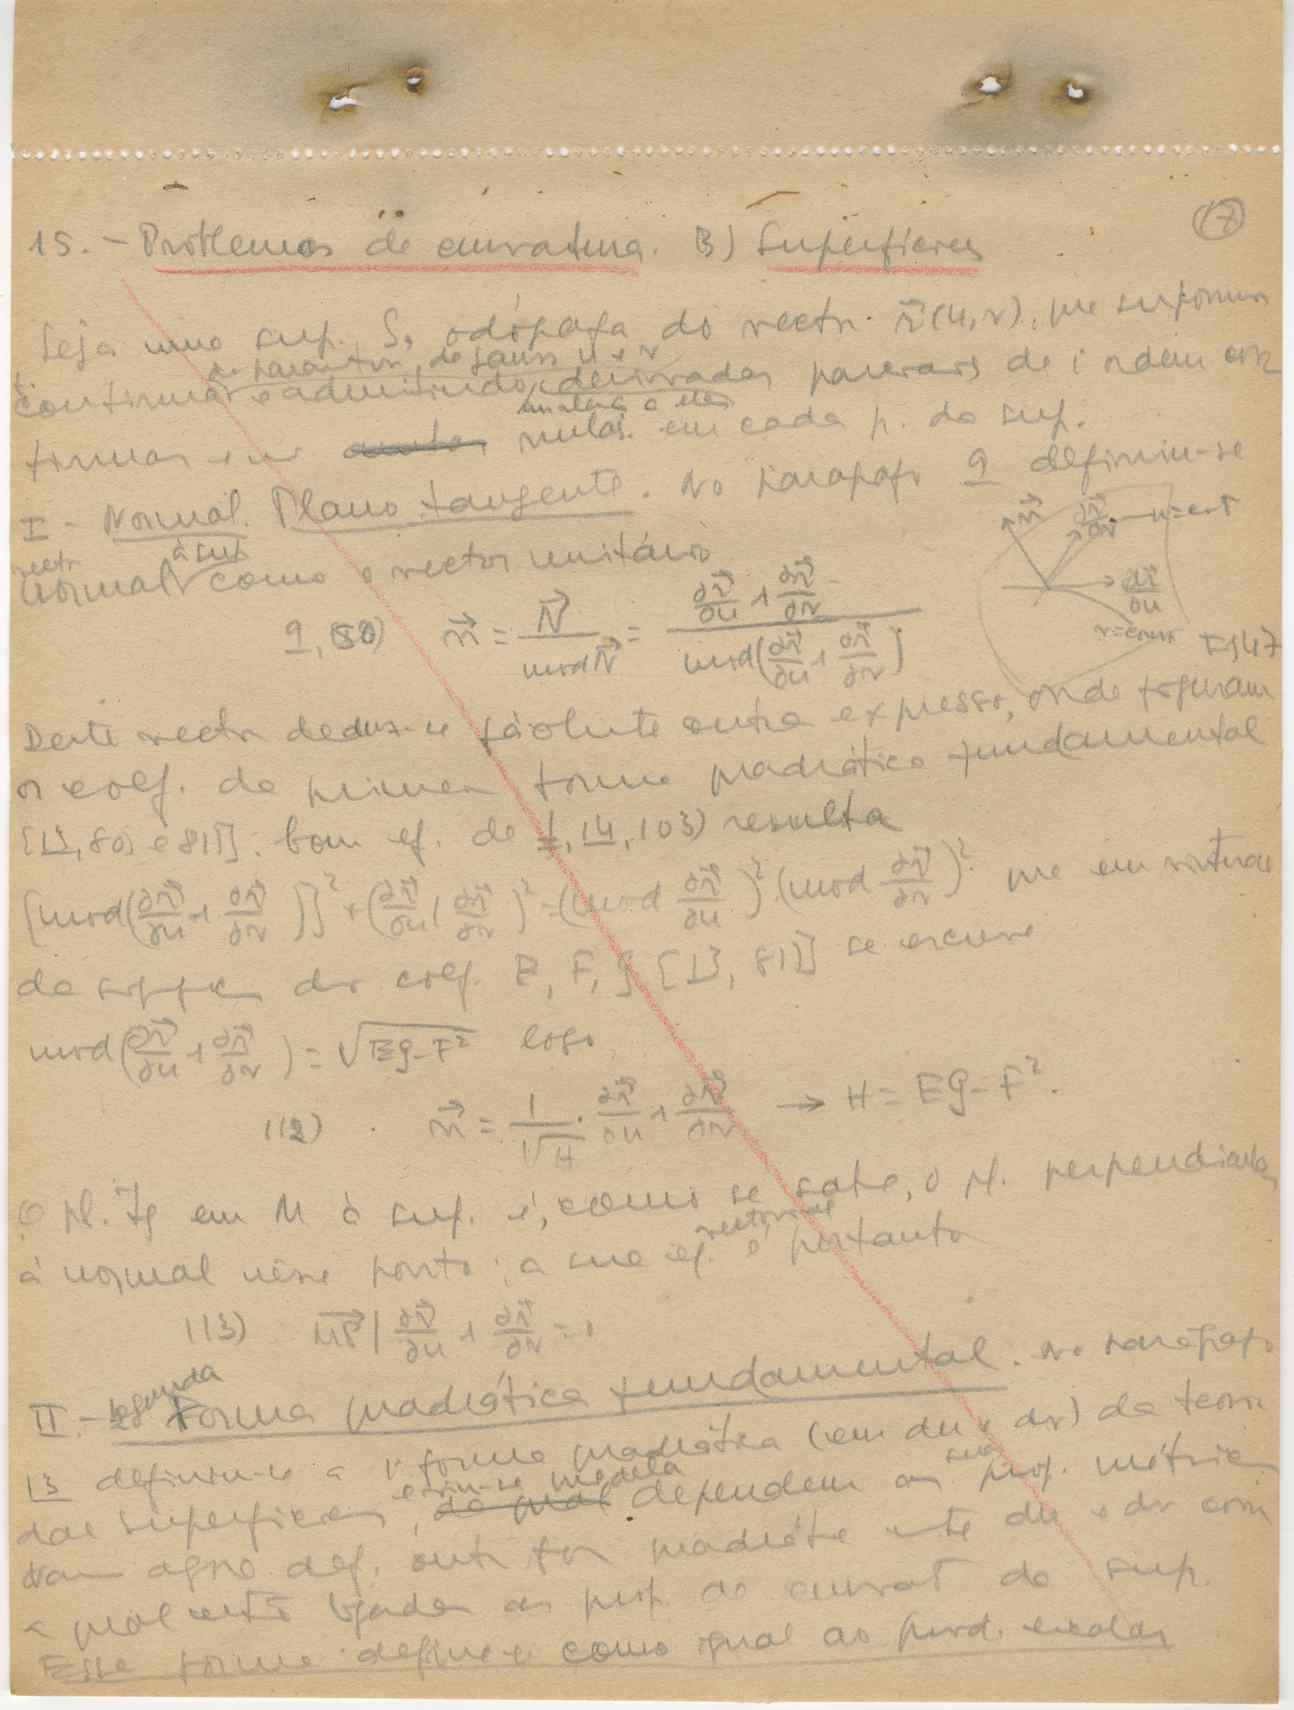 17
15. - Problemas de curvatura. B) Superfícies
Seja uma sup. S, odógrafa do vector r⃗(u,v), que supomos
de parâmetros de Gauss u e v
contínua e admitindo derivadas parciais de 1ª ordem con-
tínuas e não nulas em cada p. da sup.
I - Normal. Plano tangente. No parágrafo 9 definiu-se
vector à sup.
normal como o vector unitário
9, 50) n⃗ = N⃗ / mod N⃗ = (∂r⃗/∂u ∧ ∂r⃗/∂v) / mod(∂r⃗/∂u ∧ ∂r⃗/∂v)
n⃗ ∂r⃗/∂v u=const
∂r⃗/∂u
v=const
Fig 47
Deste vector deduz-se fàcilmente outra expressão, onde figuram
os coef. da primeira forma quadrática fundamental
[13, 80) e 81)]. Com ef. de 1, 14, 103) resulta
[mod(∂r⃗/∂u ∧ ∂r⃗/∂v)]² + (∂r⃗/∂u | ∂r⃗/∂v)² = (mod ∂r⃗/∂u)² (mod ∂r⃗/∂v)² que em virtude
da coef. E, F, G [13, 81)] se escreve
mod(∂r⃗/∂u ∧ ∂r⃗/∂v) = √EG-F² logo
112) n⃗ = 1/√H · ∂r⃗/∂u ∧ ∂r⃗/∂v → H = EG - F².
O pl. tg em M à sup. é, como se sabe, o pl. perpendicular
vectorial
à normal nesse ponto; a sua eq. é portanto
113) MP⃗ | ∂r⃗/∂u ∧ ∂r⃗/∂v = 0
II - Segunda Forma quadrática fundamental. No parágrafo
13 definiu-se a 1ª forma quadrática (em du e dv) da teoria
das superfícies, da qual dependem as suas prop. métricas
vam agora def. outra for quadrát em du e dv com
a qual estão ligadas as prop. de curvat da sup.
Essa forma define-se como igual ao prod. escalar